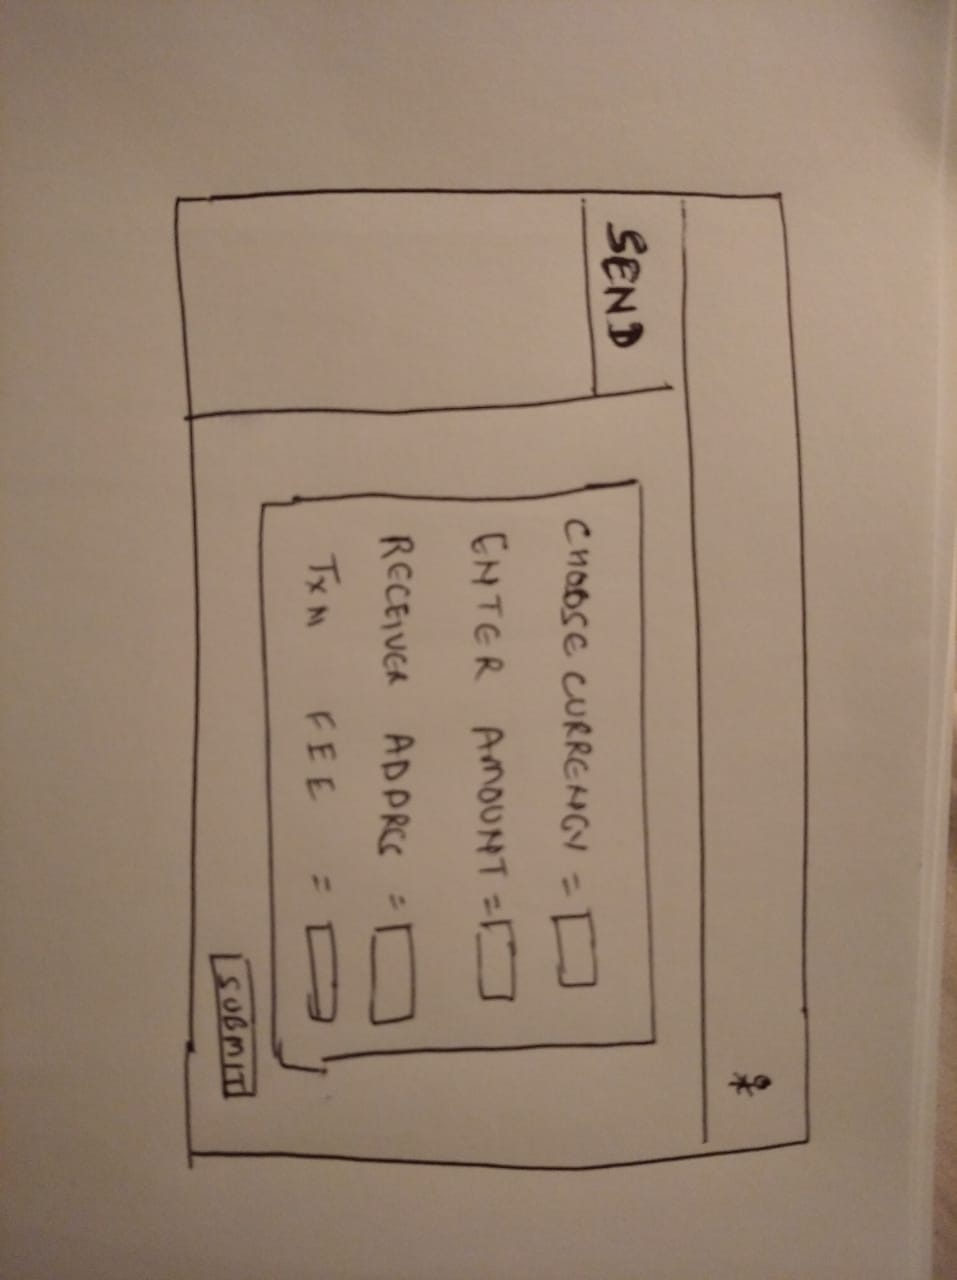 SEND
CHOOSE CURRENCY =
ENTER AMOUNT =
RECEIVER ADDRES =
TXN FEE =
SUBMIT